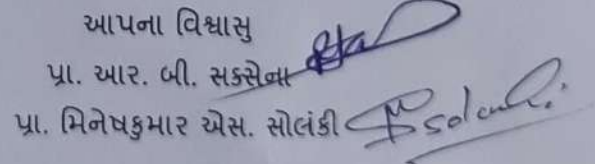 આપના વિશ્વાસુ
પ્રા. આર. બી. સક્સેના
પ્રા. મિનેષકુમાર એસ. સોલંકી Solanki